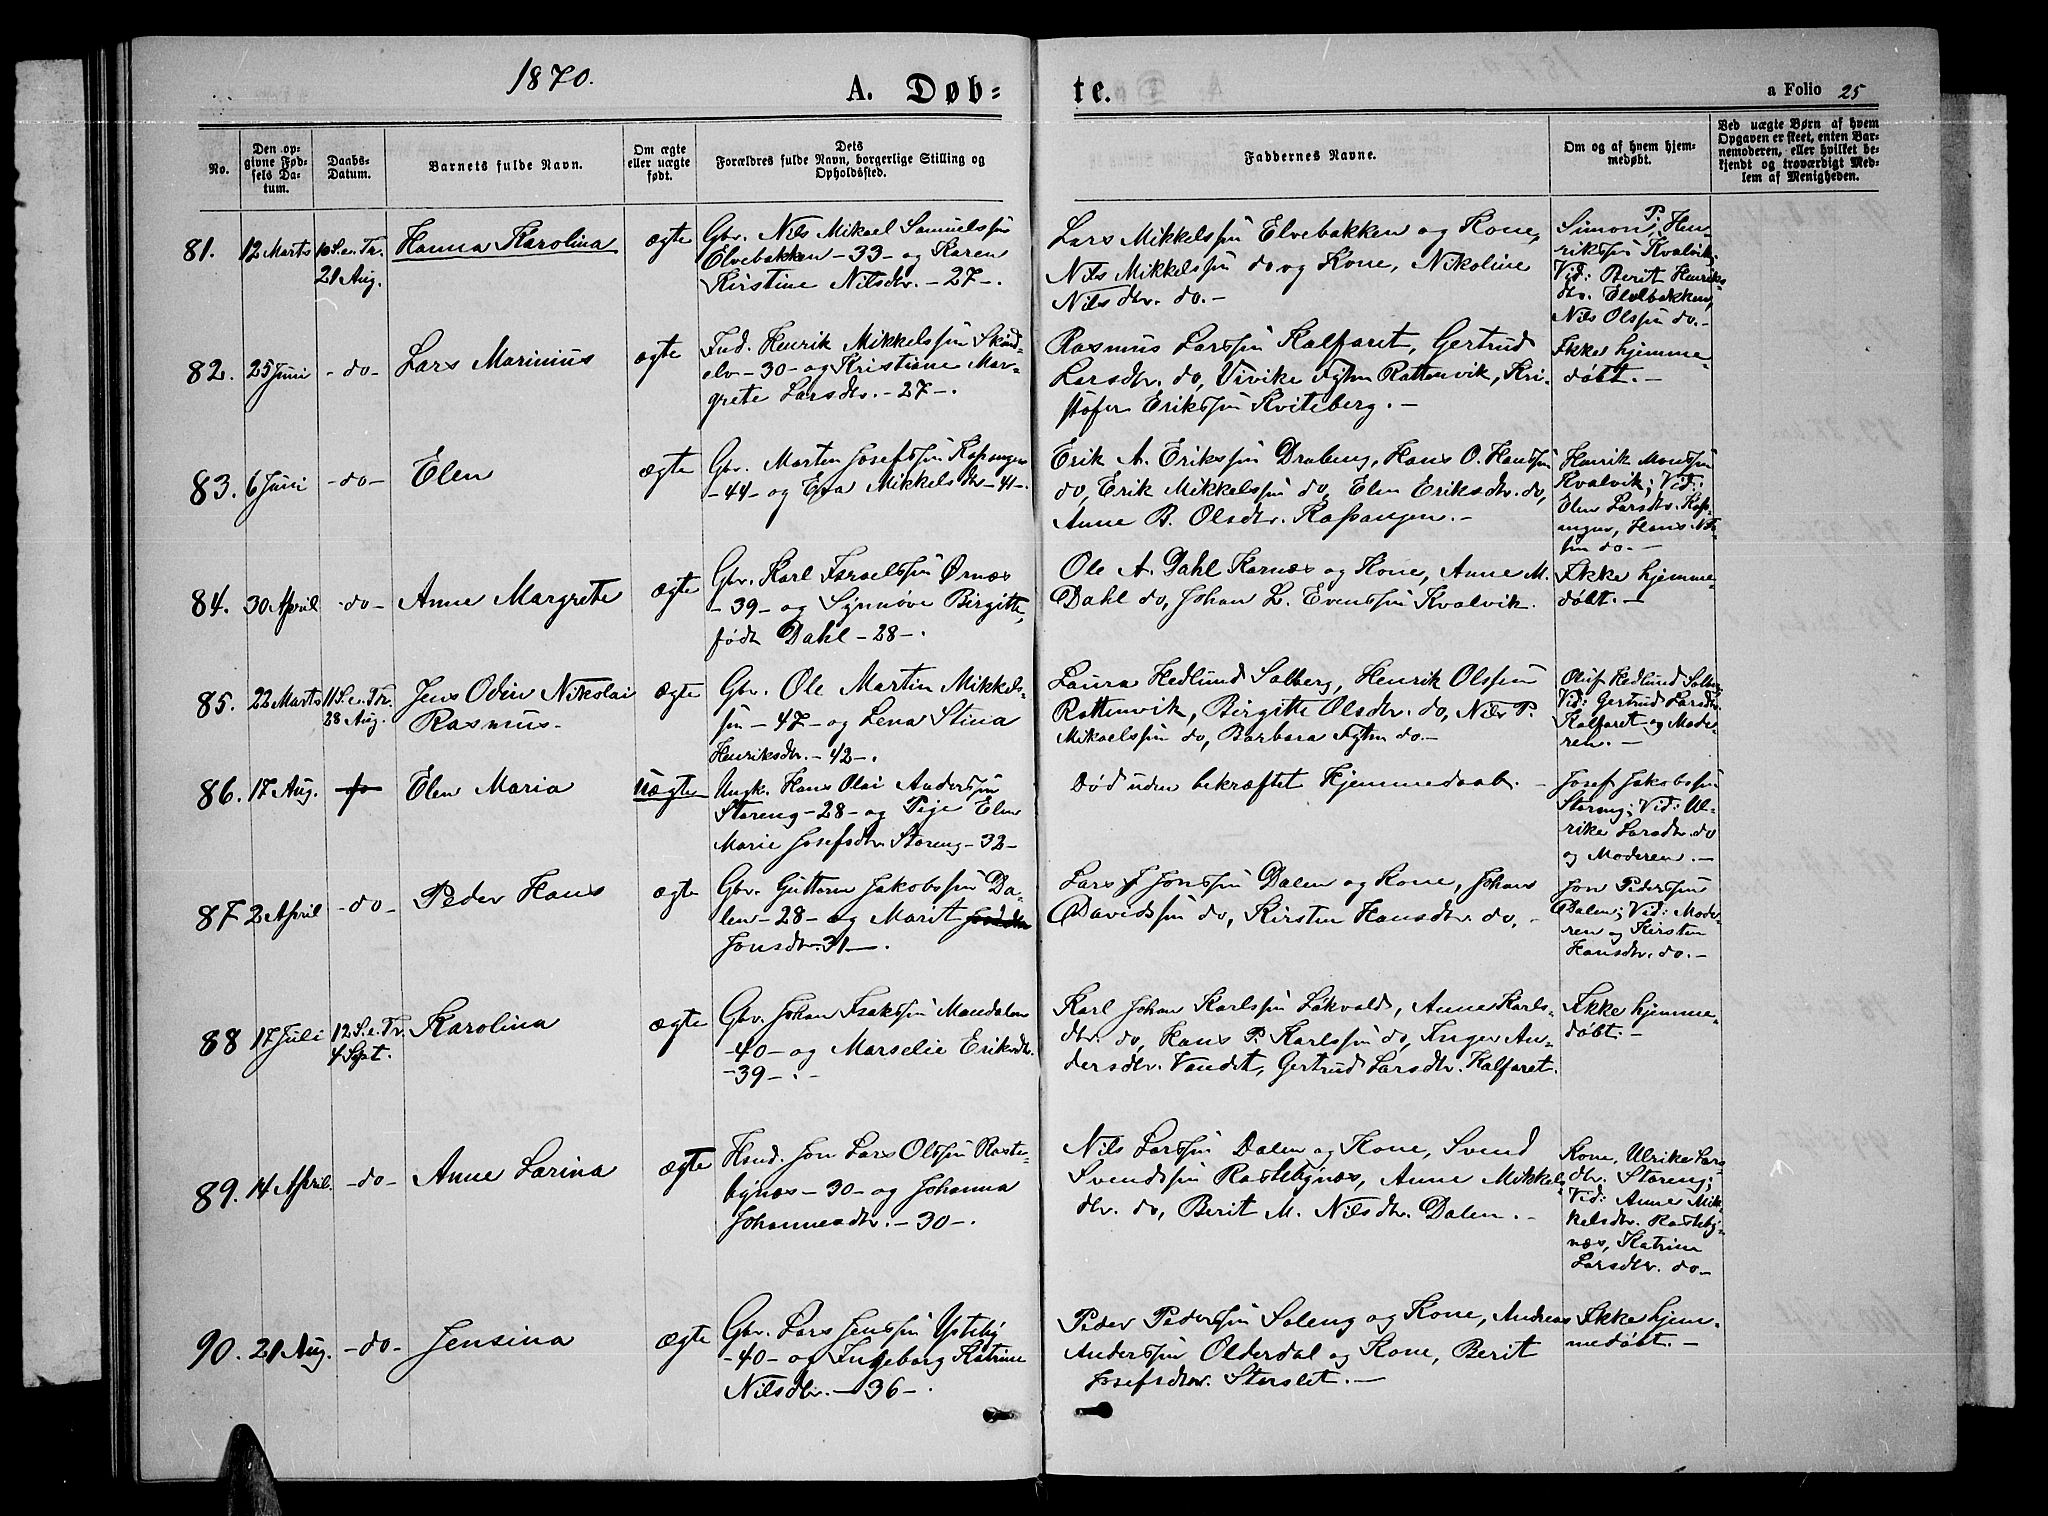 1870.
A. Døb=
te.
a Folio 25
No.
Den op-
givne Fød-
sels Da-
tum.
Daabs-
Datum.
Barnets fulde Navn.
Om ægte
eller uægte
født.
Dets
Forældres fulde Navn, borgerlige Stilling og
Opholdssted.
Faddernes Navne.
Om og af hvem hjem-
medøbt.
Ved uægte Børn af hvem
Opgaven er skeet, enten Bar-
nemoderen, eller hvilket be-
kjendt og troværdigt Med-
lem af Menigheden.
81. 12 Marts 10 S. e. Tr.
21 Aug.
Hanna Karolina
ægte
Gbr. Nils Mikael Samuelssøn
Elvebakken - 33 - og Karen
Kirstine Nilsdtr. - 27 -.
Lars Mikkelssøn Elvebakken og Kone,
Nils Mikkelssøn do og Kone, Nikoline
Nilsdtr. do. -
Simon P. Hen-
rikssøn Kvalvik;
Vid: Berit Henriks
dtr. Elvebakken,
Nils Olssøn do. -
82. 25 Juni - do -
Lars Marinius
ægte
Ind. Henrik Mikkelssøn Skind-
elv - 30 - og Kristiane Mar-
grete Larsdtr. - 27 -.
Rasmus Larssøn Kalfaret, Gertrud
Larsdtr. do, Vivike Figten Rattenvik, Kri-
stofer Erikssøn Kviteberg. -
Ikke hjemme-
døbt. -
83. 6 Juni - do -
Elen
ægte
Gbr. Morten Josefssøn Kopangen
- 44 - og Eva Mikkelsdtr - 41 -.
Erik A. Erikssøn Drabeng, Hans O. Hanssøn
do, Erik Mikkelssøn do, Elen Eriksdtr. do,
Anne B. Olsdtr. Kopangen. -
Henrik Monssøn
Kvalvik; Vid:
Elen Larsdtr. Kop-
angen, Hans Nils-
søn do. -
84. 30 April - do -
Anne Margrete
ægte
Gbr. Karl Israelssøn Ørnæs
- 39 - og Synnøve Birgitte,
født Dahl - 28 -.
Ole A. Dahl Karnæs og Kone, Anne M.
Dahl do, Johan L. Evenssøn Kvalvik.
Ikke hjemme-
døbt. -
85. 22 Marts 11 S. e. Tr.
28 Aug.
Jens Odin Nikolai
Rasmus -
ægte
Gbr. Ole Martin Mikkels-
søn - 47 - og Lena Stina
Henriksdtr. - 42 -.
Laura Hedlund Solberg, Henrik Olssøn
Rottenvik, Birgitte Olsdtr. do, Nils P.
Mikaelssøn do, Barbara Figten do -
Oluf Hedlund Solberg
Vid: Gertrud Larsdtr.
Kalfaret og Mode-
ren. -
86. 17 Aug.
Elen Maria
uægte
Ungk. Hans Olai Anderssøn
Storeng - 28 - og Pige Elen
Marie Josefsdtr Storeng - 32 -
Død uden bekræftet Hjemmedaab. -
Josef Jakobssøn
Storeng; Vid: Ul-
rike Larsdtr. do
og Moderen. -
87. 2 April - do -
Peder Hans
ægte
Gbr. Guttorm Jakobssøn Da-
len - 28 - og Marit
Jonsdtr - 31 -.
Lars J Jonssøn Dalen og Kone, Johan
Davidssøn do, Kirsten Hansdtr. do, -
Jon Pederssøn
Dalen; Vid: Mode-
ren og Kirsten
Hansdtr. do. -
88 17 Juli 12 S. e. Tr.
4 Sept.
Karolina
ægte
Gbr. Johan Isakssøn Mandalen
- 40 - og Marselie Eriksdtr.
- 39 -.
Karl Johan Karlssøn Løkvold, Anne Karls-
dtr. do, Hans P. Karlssøn do, Inger An-
dersdtr. Vandet, Gertrud Larsdtr. Kalfaret.
Ikke hjemme-
døbt. -
89. 14 April. - do -
Anne Larina
ægte
Hsnd. Jon Lars Olssøn Raste-
bynæs - 30 - og Johanna
Johannesdtr. - 30 -.
Nils Larssøn Dalen og Kone, Svend
Svendssøn Rastebynæs, Anne Mikkels
dtr. do, Berit M. Nilsdtr. Dalen. -
Kone, Ulrike Lars
dtr. Storeng;
Vid: Anne Mik-
kelsdtr. Rasteby-
næs, Katrine
Larsdtr. do -
90. 21 Aug. - do -
Jensina
ægte
Gbr. Lars Jenssøn Ysteby
- 40 - og Ingeborg Katrine
Nilsdtr. - 36 -.
Peder Pederssøn Soleng og Kone, Andreas
Anderssøn Olderdal og Kone, Berit
Josefsdtr. Storslet. -
Ikke hjem-
medøbt. -